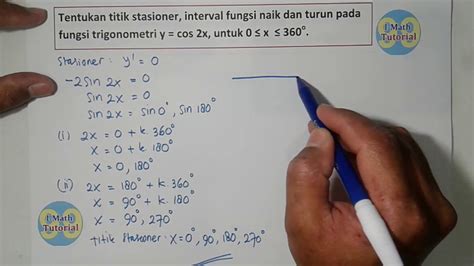 Tentukan titik stasioner, interval fungsi naik dan turun pada
fungsi trigonometri y = cos 2x, untuk 0 ≤ x ≤ 360°.
I Math
Tutorial
Stasioner : y' = 0
-2 sin 2x = 0
sin 2x = 0
sin 2x = sin 0°, sin 180°
(i) 2x = 0 + k.360°
x = 0 + k.180°
x = 0, 180°
(ii) 2x = 180° + k.360°
x = 90° + k.180°
x = 90°, 270°
Titik stasioner : x = 0°, 90°, 180°, 270°
I Math
Tutorial